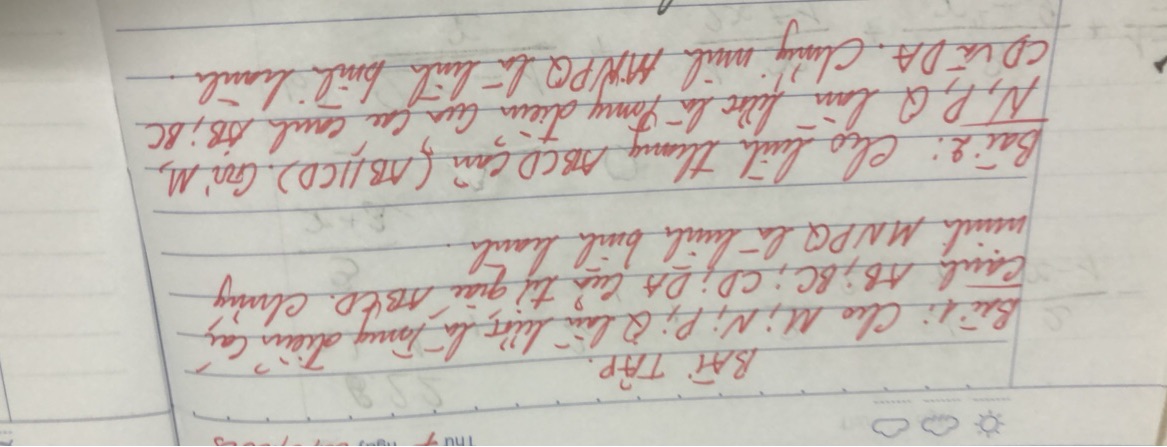 BÀI TẬP.
Bài 1: Cho M; N; P; Q lần lượt là trung điểm các
cạnh AB; BC; CD; DA của tứ giác ABCD. Chứng
minh MNPQ là hình bình hành.
Bài 2: Cho hình thang ABCD cân (AB//CD). Gọi M,
N, P, Q lần lượt là trung điểm của các cạnh AB; BC
CD và DA. Chứng minh MNPQ là hình bình hành.